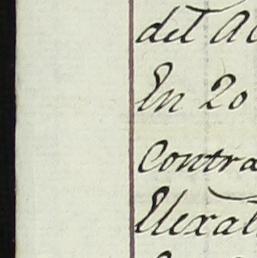 del A
En 20
contra
Elexal